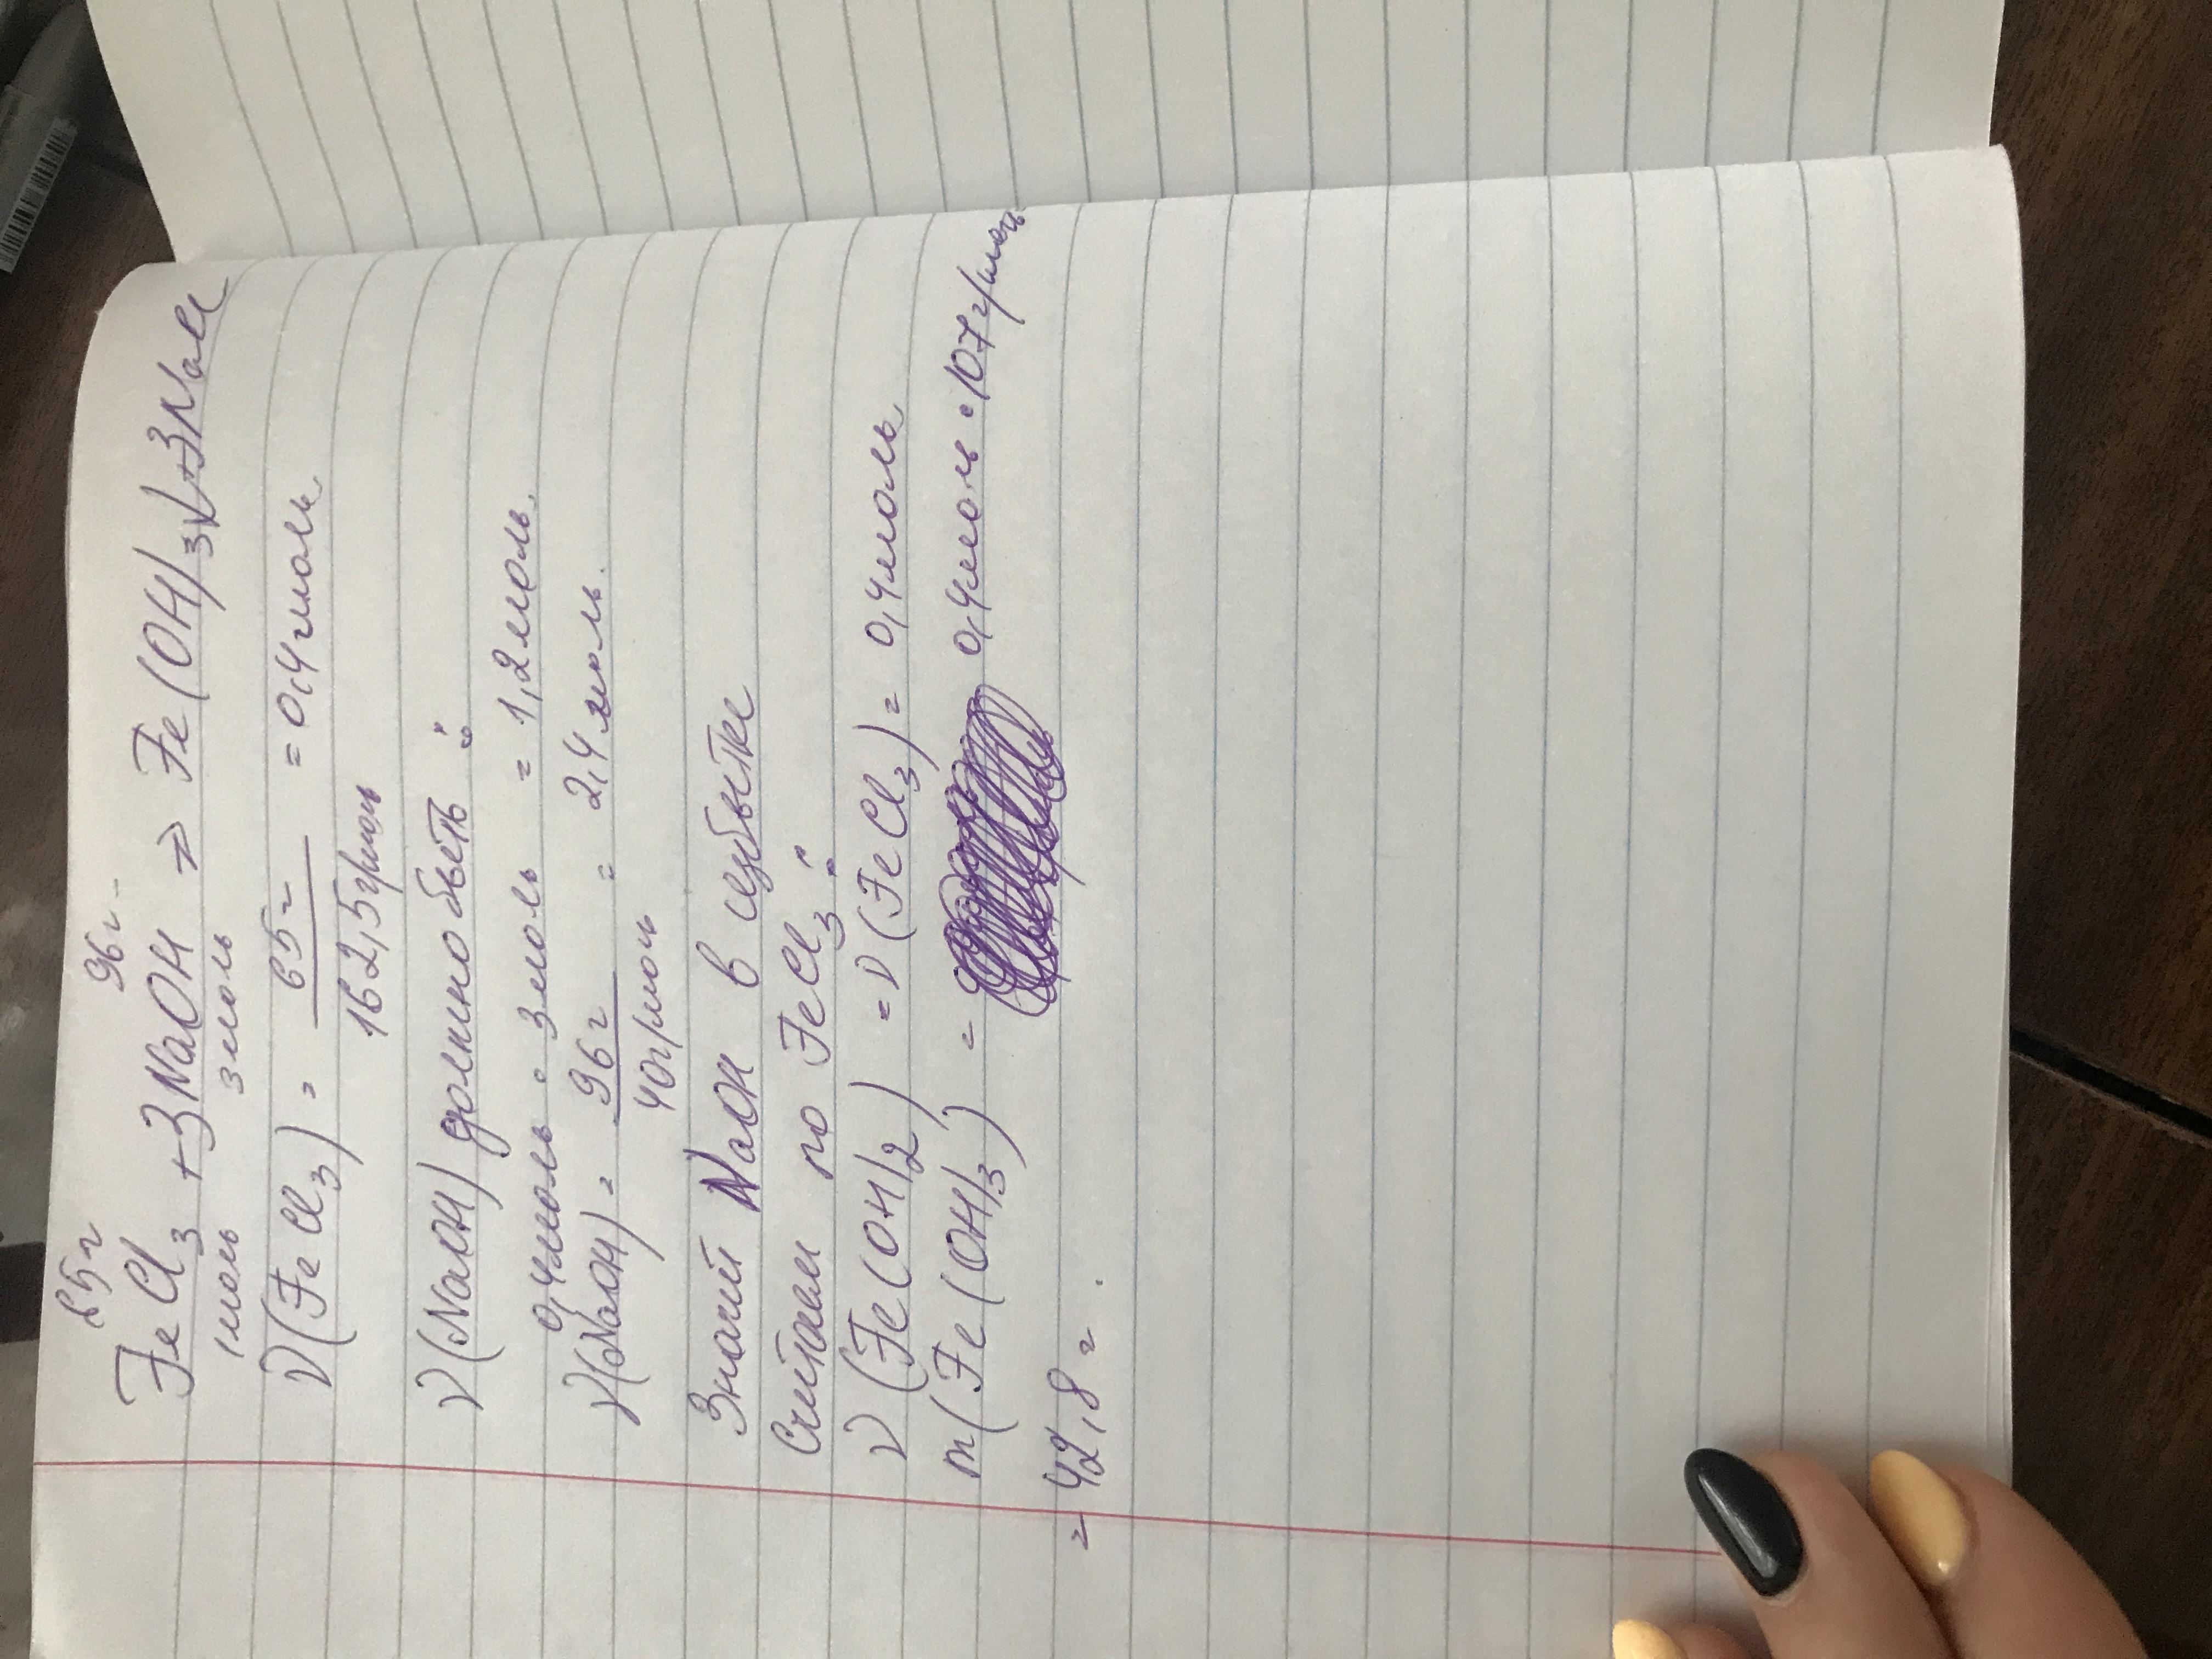 65г 96г
FeCl3 + 3NaOH → Fe(OH)3↓+3NaCl
1моль 3моль
ν(FeCl3) = 65г / 162,5г/моль = 0,4моль
ν(NaOH) должно быть:
0,4моль · 3моль = 1,2моль.
ν(NaOH) = 96г / 40г/моль = 2,4 моль.
Значит NaOH в избытке
Считаем по FeCl3:
ν(Fe(OH)2) = ν(FeCl3) = 0,4моль
m(Fe(OH)3) = 0,4моль · 107г/моль
= 42,8г.